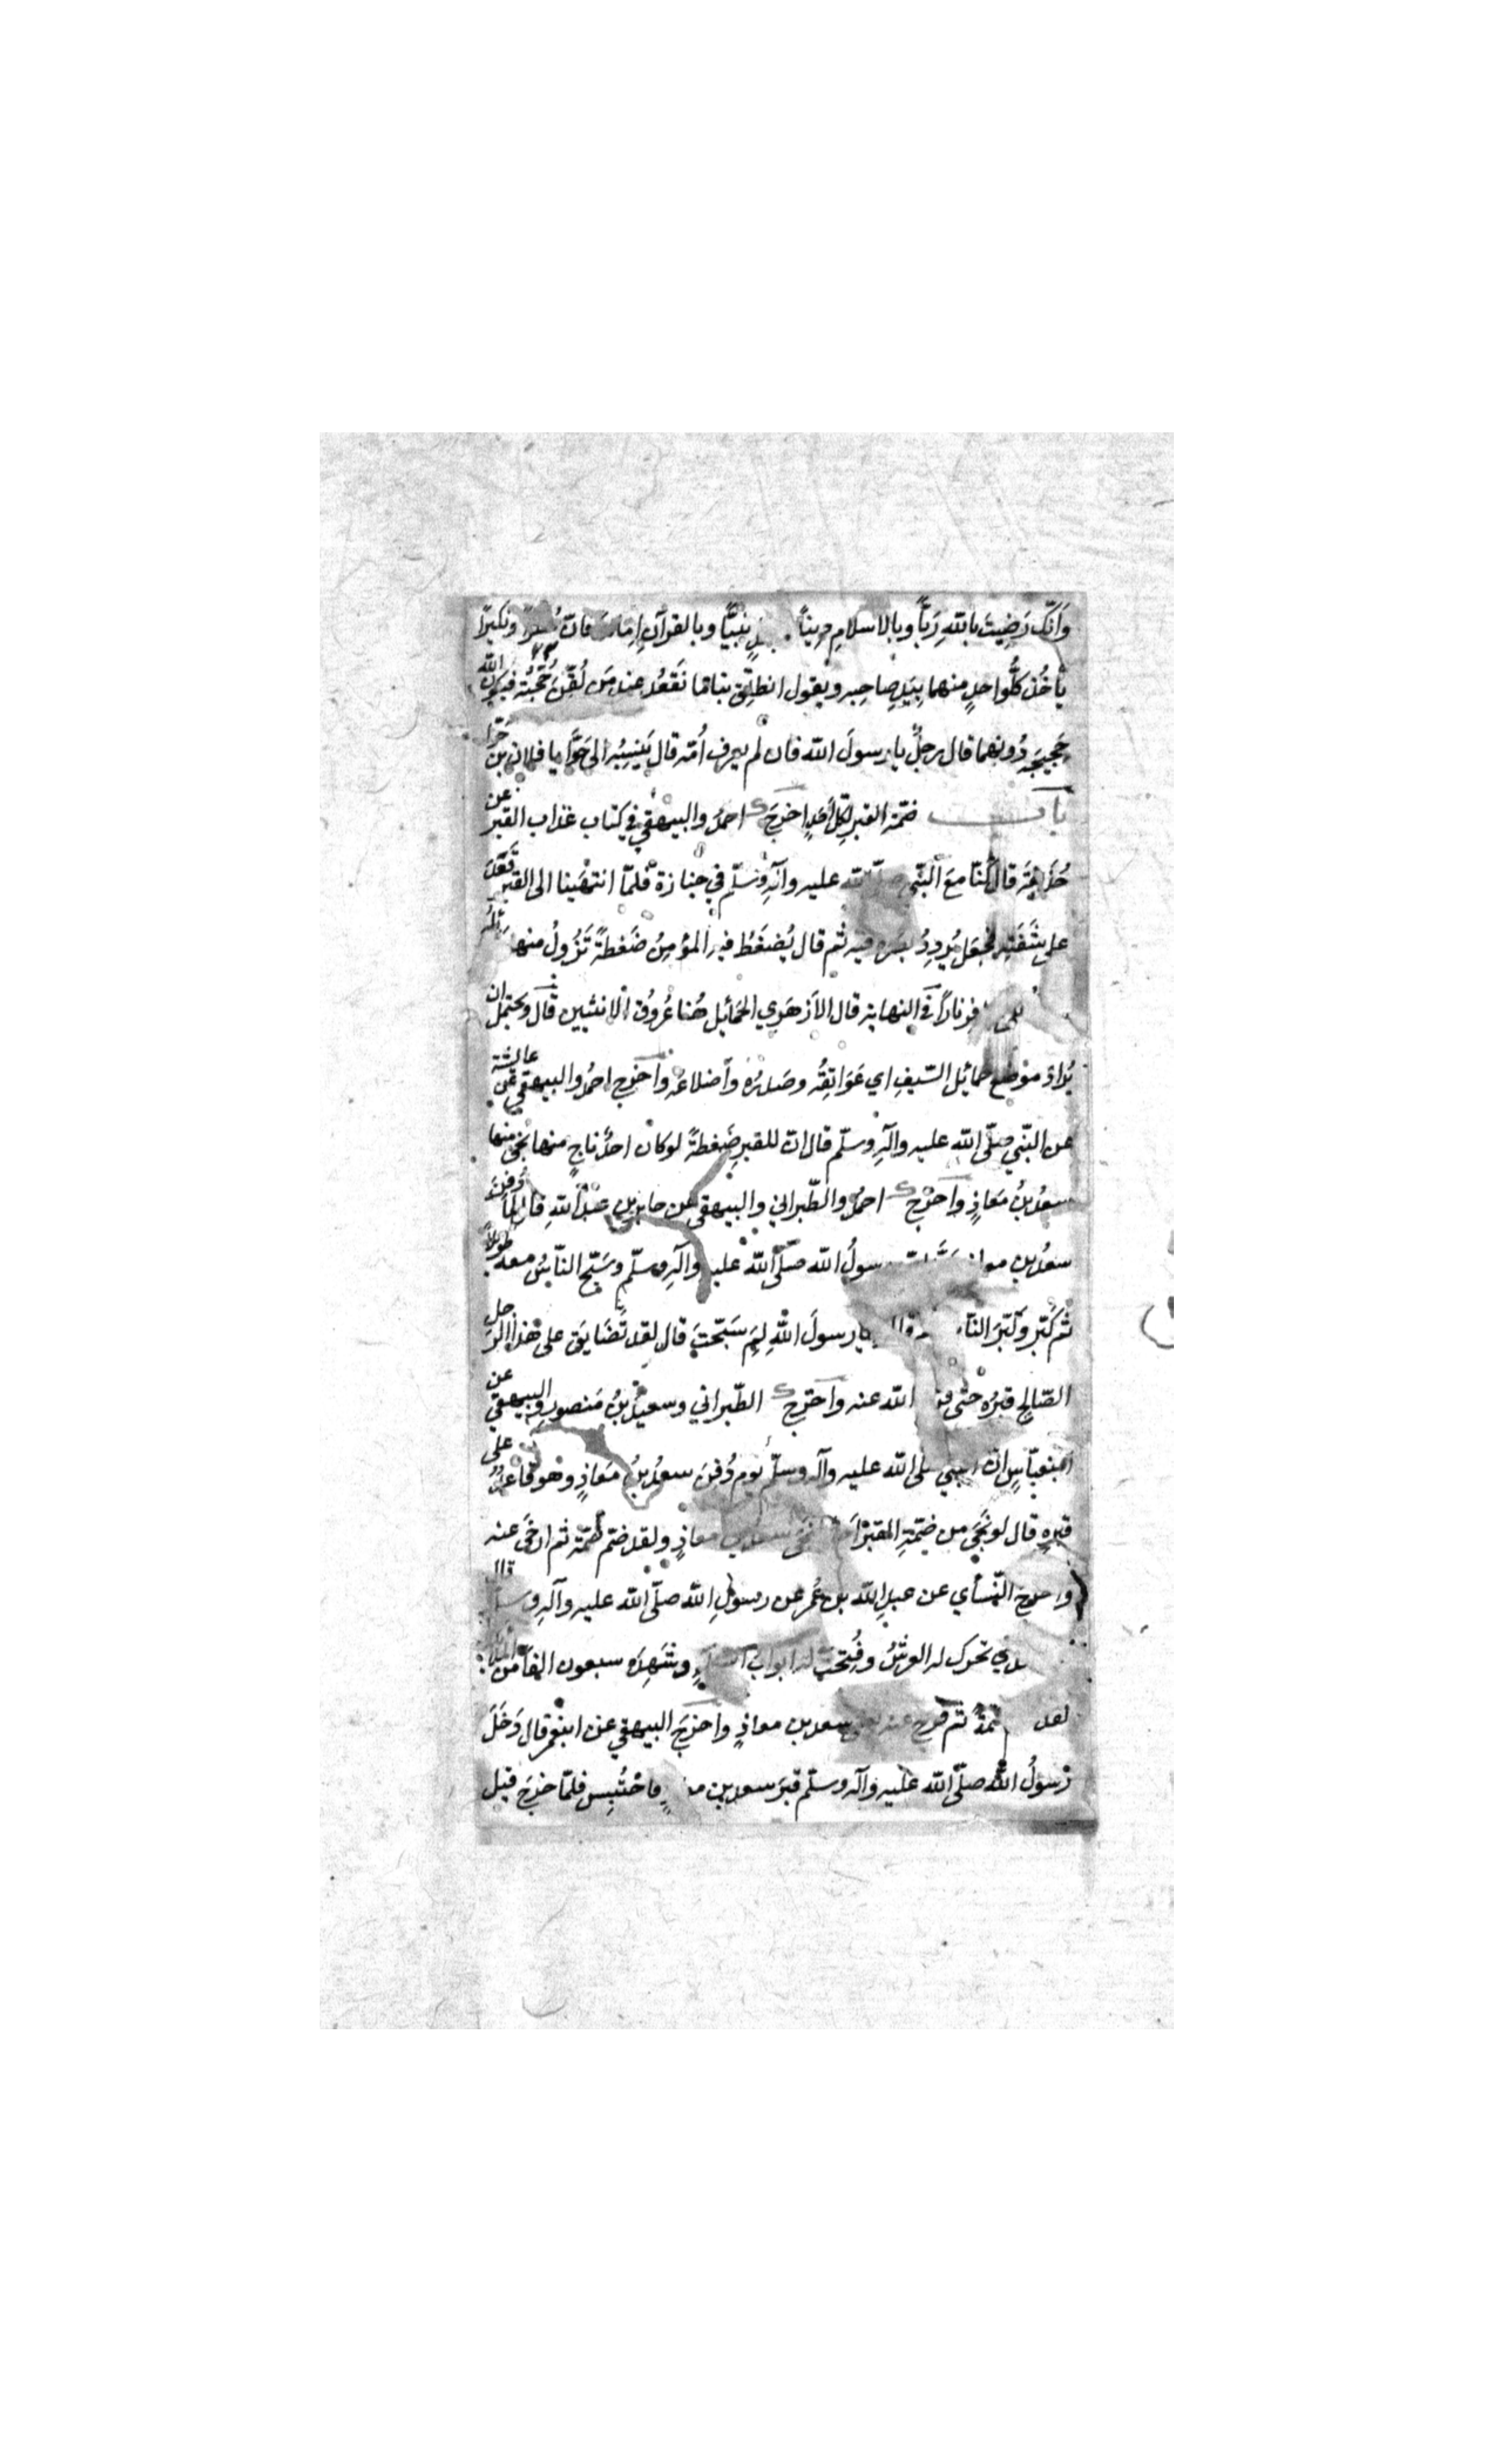 وَاَنَّكَ رَضِيتَ بالله رَبّاً وبالاسلامِ دِيناً نَبِيّاً وبالقرآن فانّ ونكيراً
يأخُذ كلُّ واحدٍ منهما بِيَدِ صاحِبِه ويقول انطَلِق بناما نَقعُد عند مَن لُقِّنَ حُجَّتَه فيكون الله
حَجيجَه دُونهما قال رجلٌ يا رسولَ الله فان لم يعرف اُمّه قال يَنسِبُه الى حَوَّا يا فلان بن حَوّا
باب ضمّة القبر لكلّ اَحَدٍ اخرَجَ احمدُ والبيهقي في كتاب عذاب القبر عن
حُذَيفَة قال كُنّا مع النّبي صلّى الله عليه وآله وسلّم في جنازة فلمّا انتهَينا الى القبر قَعَدَ
على شَفَتِه فجَعَل يُرَدِدُ بصره فيه ثم قال يُضغَطُ فيه المؤمِنُ ضَغطةً تَزُولُ منها
ناراً في النهاية قال الاَزهَري الحَمائِل هُنا عُروُق الانثيين قال ويحتمل ان
يُرادَ موضع حمائل السّيفِ اي عَوَاتِقُه وصَدرُه وأضلاعُه واَخرَج احمدُ والبيهقي عن عائشة
عن النّبي صلّى الله عليه وآلهِ وسلّم قال انّ للقبرِ ضَغطةً لو كان احدٌ ناجٍ منها نجَى منها
سعدُ بنُ مَعاذٍ واَخرَج احمدُ والطّبراني والبيهقي عن جابر بن عبد الله قال لمّا دُفِنَ
سعدُ بن رسولُ الله صلّى الله عليه وآلهِ وسلّم وسَبّح النّاسُ معه طويلاً
ثم كَبّر وكَبّرَ يا رسولَ اللهِ لِمَ سَبّحتَ قال لقد تَضَايَق على هذا الرَجل
الصّالح قبرُه حتى الله عنه واَخرَج الطّبراني وسعيدُ بنُ مَنصور والبيهقي عن
ابنعبّاسٍ انّ النبي صلى الله عليه وآله وسلّم يوم دُفِنَ سعدُ بنُ مَعاذٍ وهو قاعدٌ على
قبرِهِ قال لو نَجَى من ضمّةِ القبر نَجَى سعد بن معاذٍ ولقد ضمّ ضمّة ثم ارخَى عنه
واخرج النّسأي عن عبدِ الله بن عُمر عن رسولِ الله صلّى الله عليه وآله وسلّم قال
تحرك له العرشُ وفُتِحَت له ابواب السماءِ وشَهِدَه سبعون الفاً من
لقد ثم فُرِجَ عنه يعني سعد بن معاذٍ واَخرَجَ البيهقي عن ابنعمر قال دَخَلَ
رَسولُ الله صلّى الله عليه وآله وسلّم قبرَ سعد بن فاحتُبِس فلمّا خرَجَ قيل